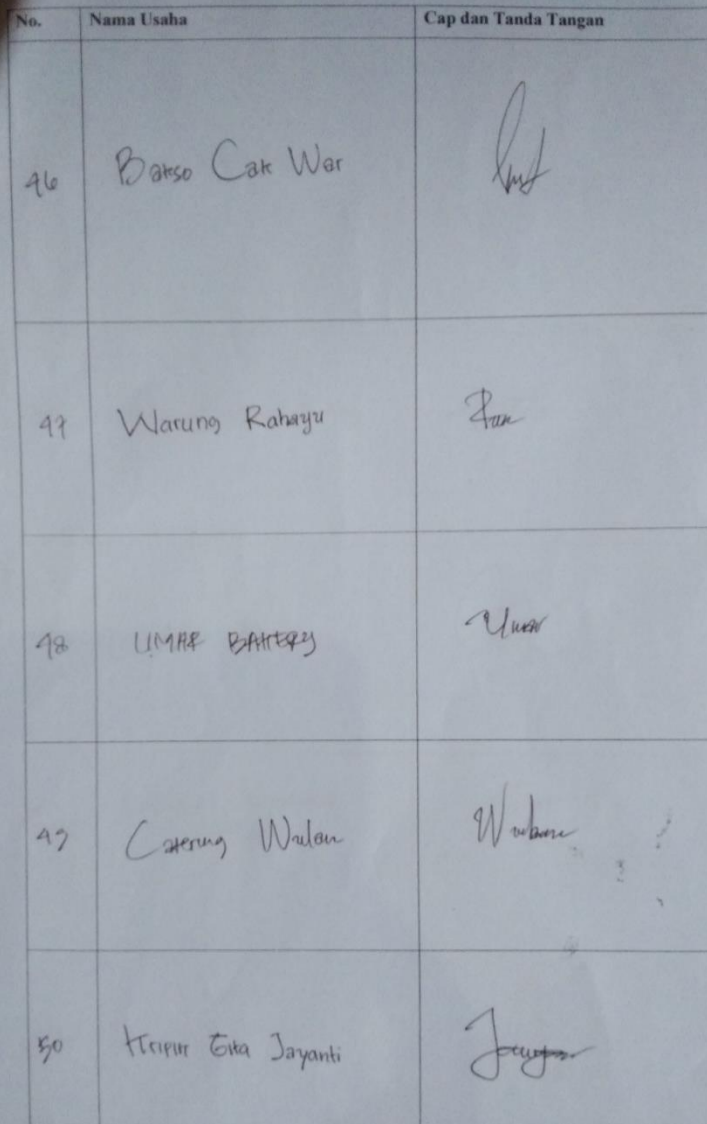 No. Nama Usaha Cap dan Tanda Tangan
46 Bakso Cak War
47 Warung Rahayu
48 UMAR BAKERY Umar
49 Catering Wulan Wulan
50 Kripik Gita Jayanti